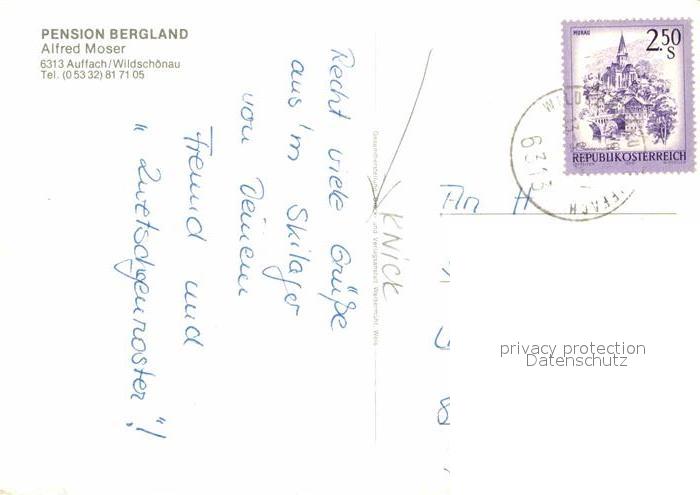 PENSION BERGLAND
Alfred Moser
6313 Auffach/Wildschönau
Tel. (0 53 32) 81 71 05
Recht viele Grüße
aus'm Skilager
von Deinem
Freund und
"Zwetschgenröster"!
KNICK
MURAU
2.50
S
REPUBLIK ÖSTERREICH
6313
An H
privacy protection
Datenschutz